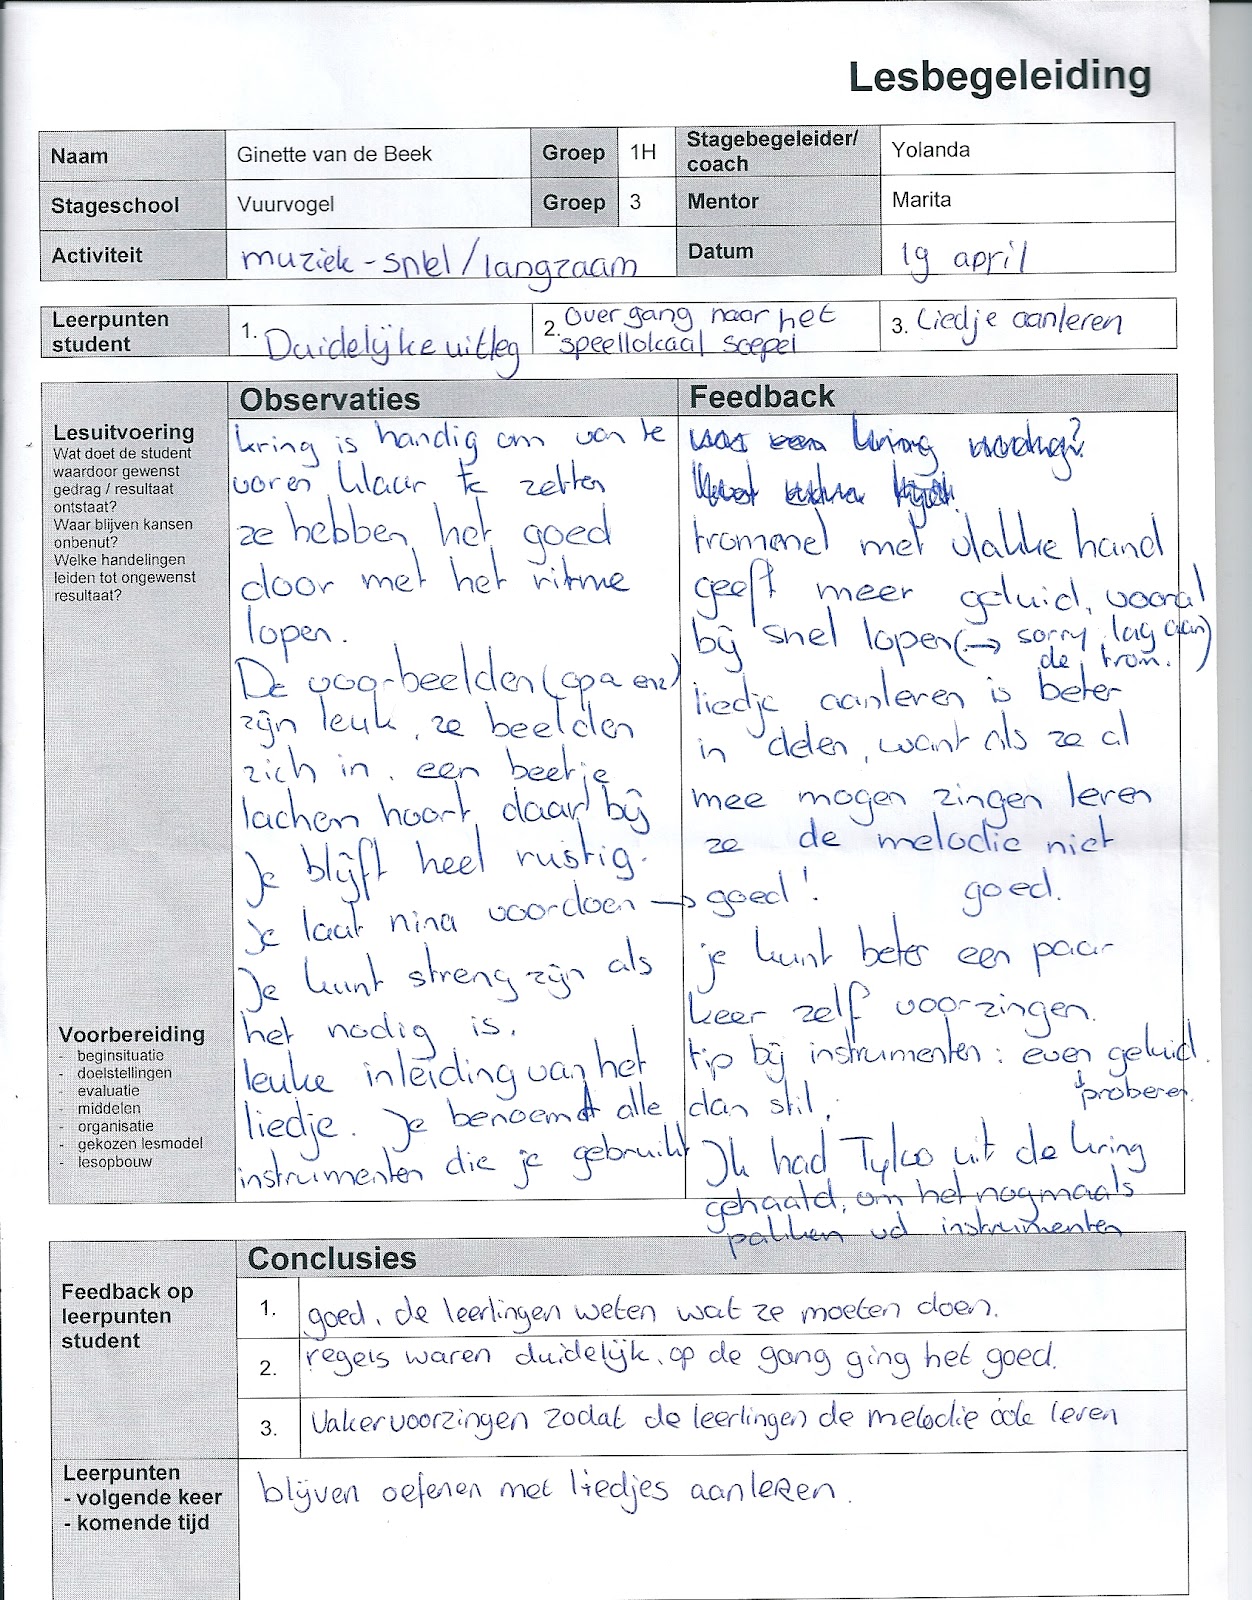 Lesbegeleiding
Naam Ginette van de Beek Groep 1H Stagebegeleider/ coach Yolanda
Stageschool Vuurvogel Groep 3 Mentor Marita
Activiteit muziek - snel/langzaam Datum 19 april
Leerpunten student
1. Duidelijke uitleg
2. overgang naar het
speellokaal soepel
3. Liedje aanleren
Observaties
Feedback
Lesuitvoering
Wat doet de student
waardoor gewenst
gedrag / resultaat
ontstaat?
Waar blijven kansen
onbenut?
Welke handelingen
leiden tot ongewenst
resultaat?
Voorbereiding
- beginsituatie
- doelstellingen
- evaluatie
- middelen
- organisatie
- gekozen lesmodel
- lesopbouw
kring is handig om van te
voren klaar te zetten
ze hebben het goed
door met het ritme
lopen.
De voorbeelden (opa enz)
zijn leuk, ze beelden
zich in. een beetje
lachen hoort daar bij
Je blijft heel rustig.
Je laat nina voordoen →
Je kunt streng zijn als
het nodig is.
leuke inleiding van het
liedje. Je benoemt alle
instrumenten die je gebruikt
kring nodig?
trommel met vlakke hand
geeft meer geluid, vooral
bij snel lopen (→ sorry, lag aan)
de trom.
liedje aanleren is beter
in delen, want als ze al
mee mogen zingen leren
ze de melodie niet
goed! goed.
je kunt beter een paar
keer zelf voorzingen.
tip bij instrumenten: even geluid
↓ proberen.
dan stil,
Ik had Tylco uit de kring
gehaald, om het nogmaals
pakken vd instrumenten
Conclusies
Feedback op
leerpunten
student
1. goed, de leerlingen weten wat ze moeten doen.
2. regels waren duidelijk, op de gang ging het goed.
3. Vaker voorzingen zodat de leerlingen de melodie ook leren
Leerpunten
- volgende keer
- komende tijd
blijven oefenen met liedjes aanleren.